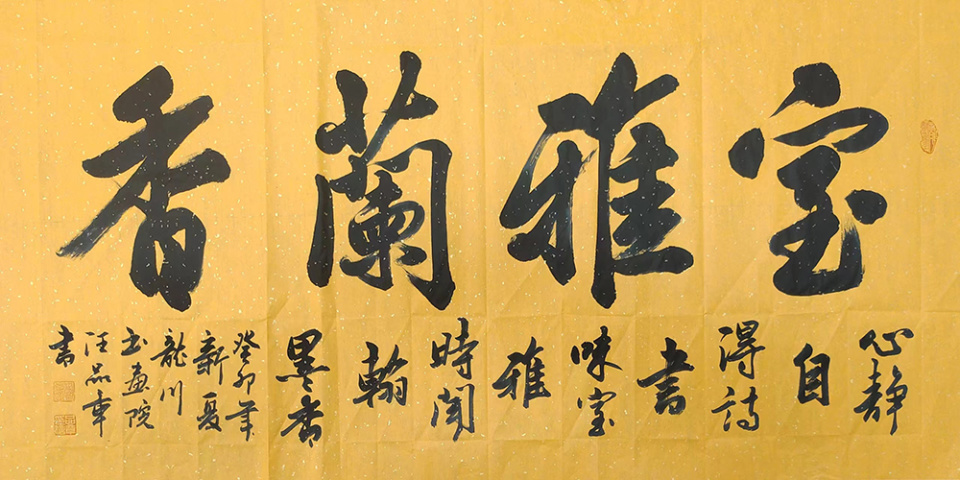 室雅蘭香
心静
自
得詩
書
味室
雅
時聞
翰
墨香
癸卯年
新夏
龍川
书畫院
汪品章
書